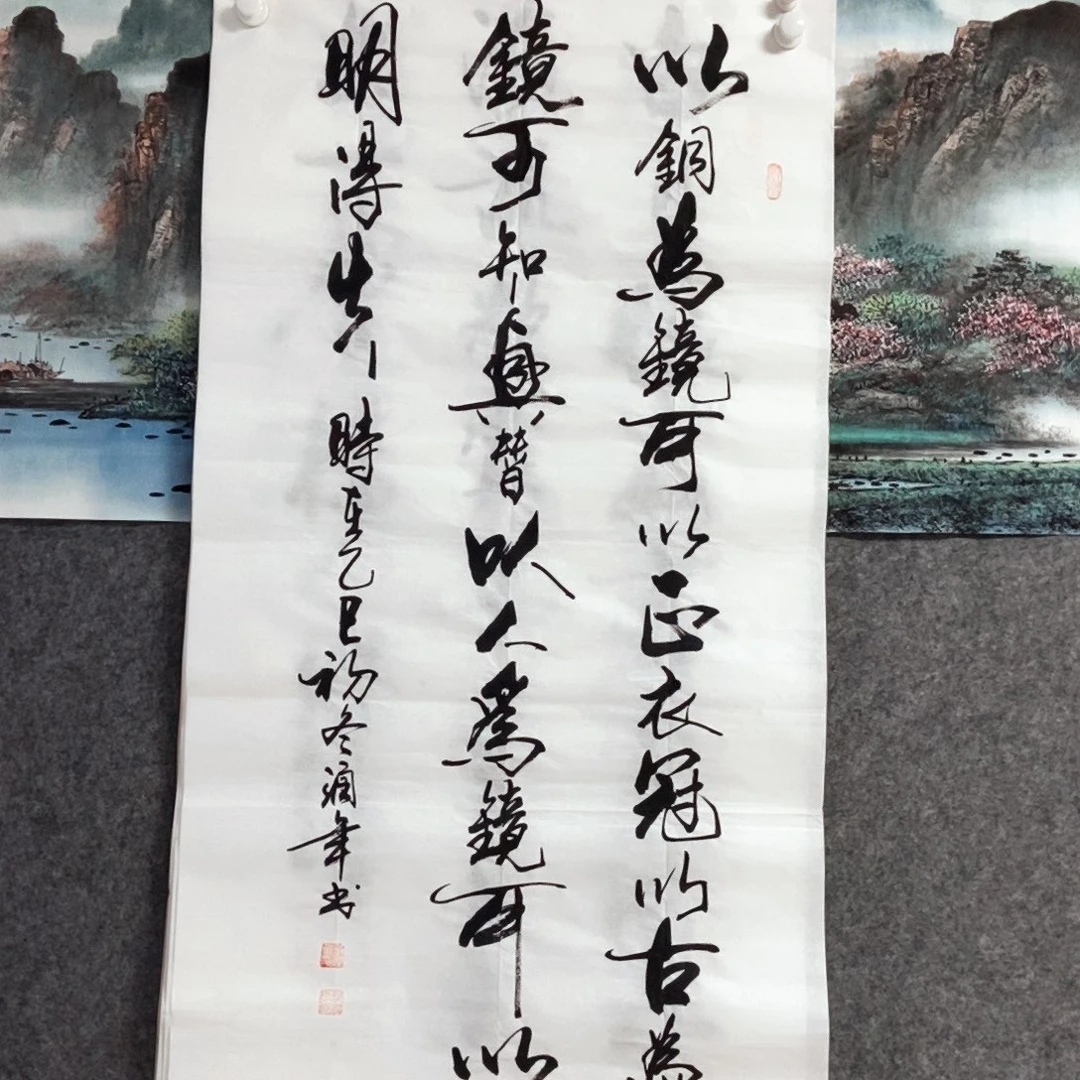 以銅為鏡可以正衣冠以古為
鏡可知興替以人為鏡可以
明得失 時在乙巳初冬潤年书